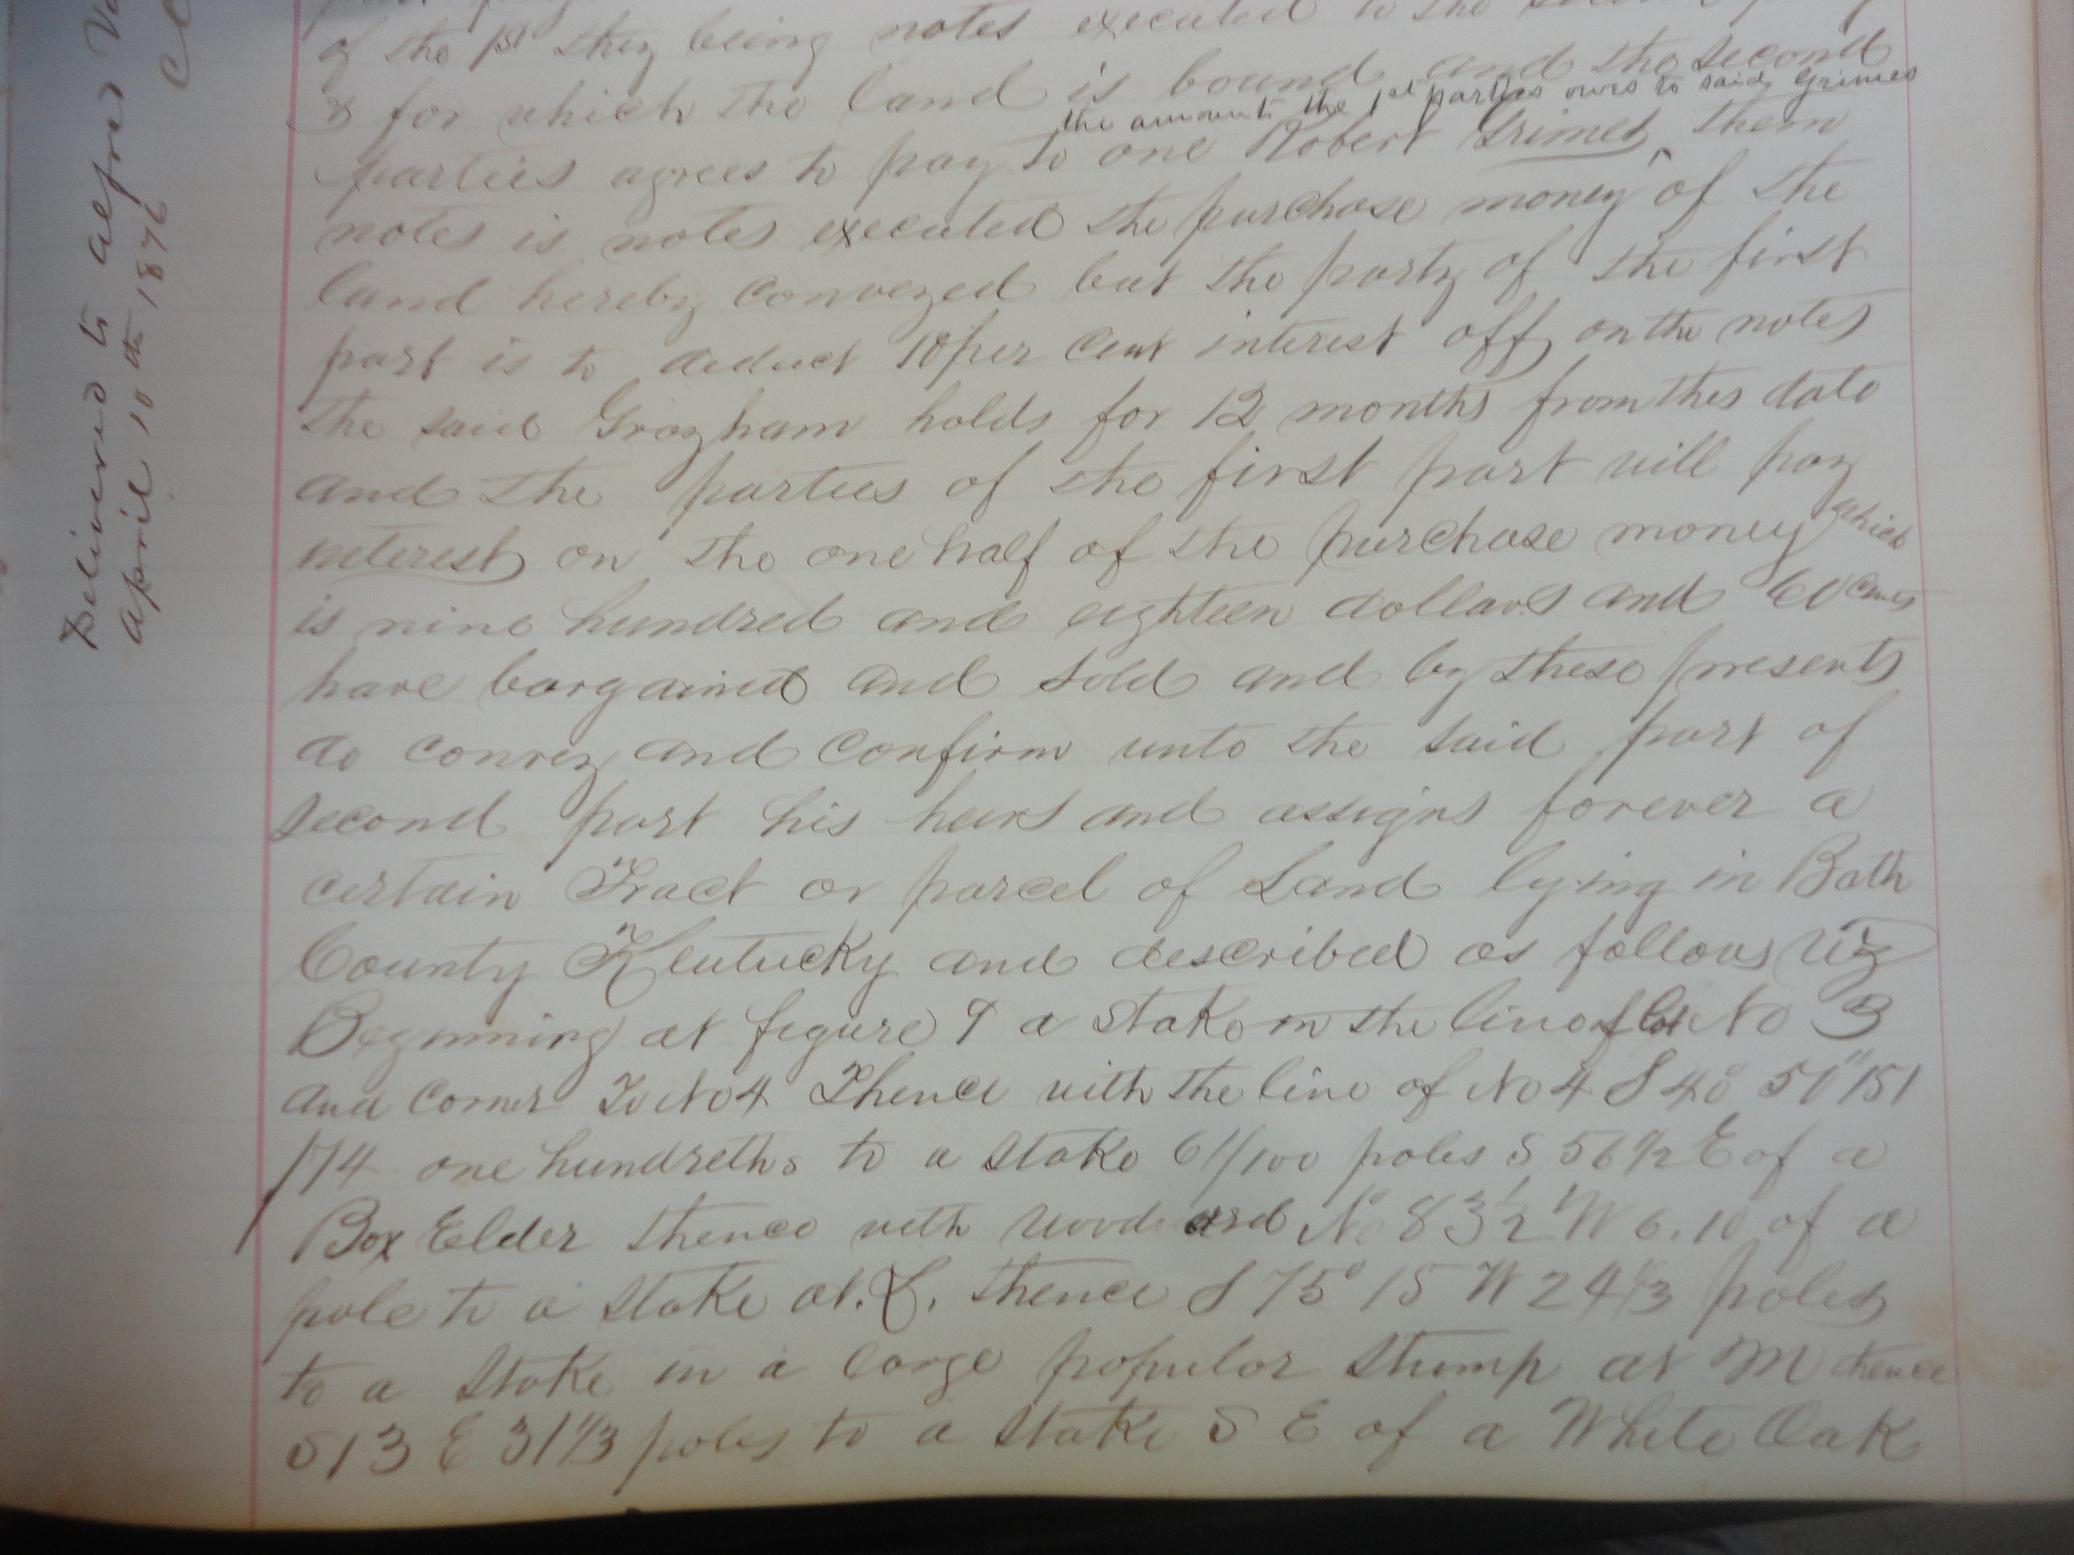 Delivered to Alfred
April 10th 1876
of the 1st they being notes executed to the
& for which the land is bound and the second
the amount the 1st parties owes to said Grimes
parties agrees to pay to one Robert Grimes ^ them
notes is notes executed the purchase money of the
land hereby conveyed but the party of the first
part is to deduct 10 per cent interest off on the notes
the said Grayham holds for 12 months from this date
and the parties of the first part will pay
interest on the one half of the purchase money which
is nine hundred and eighteen dollars and 60 cents
have bargained and sold and by these presents
do convey and confirm unto the said part of
second part his heirs and assigns forever a
certain Tract or parcel of Land lying in Bath
County Kentucky and described as follows viz
Beginning at figure 9 a stake in the line of lot No 3
and corner To No 4 Thence with the line of No 4 S 48° 50" 151
/74 one hundreths to a stake 61/100 poles S 56 1/2 E of a
Box Elder thence with Woodard N 83 1/2 W 6.10 of a
pole to a stake at . L. thence S 75° 15 W 24 1/3 poles
to a stake in a large populor stump at M thence
S 13 E 31 1/3 poles to a stake S E of a White Oak